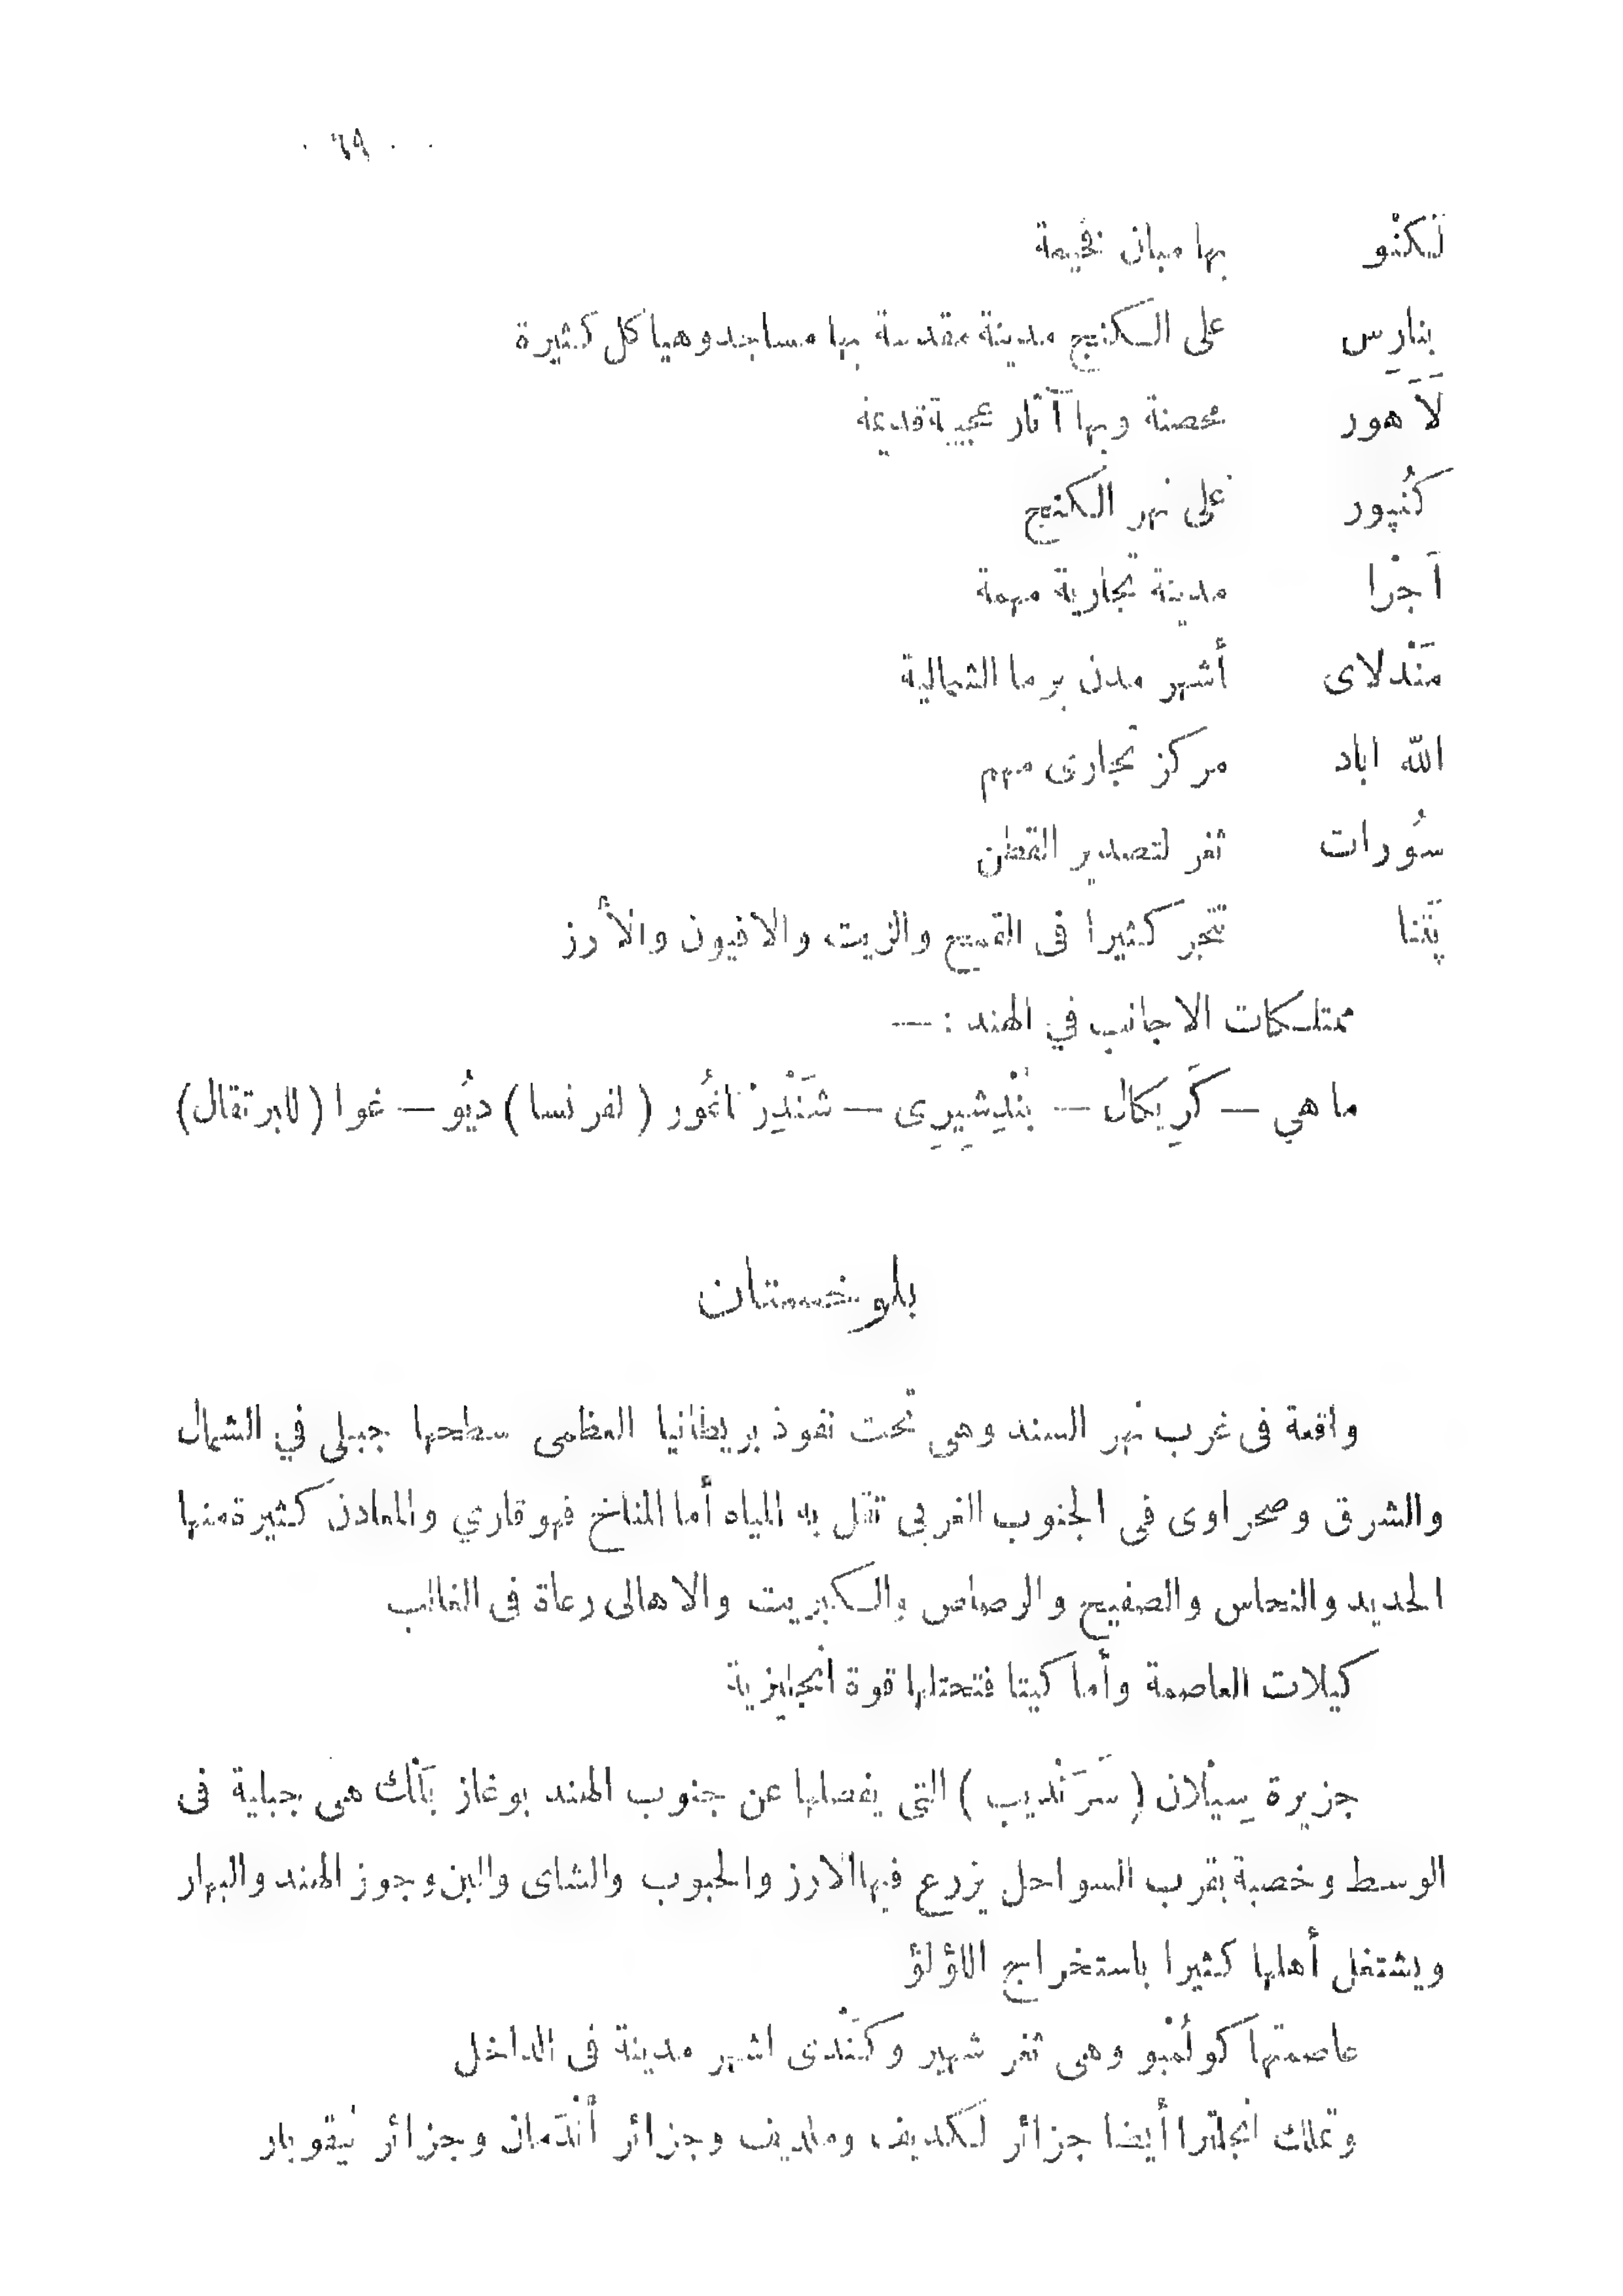 ٦٩
لَكنْو بها مبان فخيمة
بنارِس على الكنج مدينة مقدسة بها مساجد وهياكل كثيرة
لاَهور محصنة وبها آثار عجيبة قديمة
كُنپور على نهر الكنج
اَجْرا مدينة تجارية مهمة
مَنْدلاى أشهر مدن برما الشمالية
الله اباد مركز تجارى مهم
سُورات ثغر لتصدير القطن
پَتنا تتجر كثيرا فى القمح والزيت والافيون والأرز
ممتلكات الاجانب في الهند : —
ماهي — كَرِيكال — بُنْدِشِيرِى — شَنْدِرْ ناغُور ( لفرنسا ) ديُو — غوا ( للبرتقال )
بلوخستان
واقعة فى غرب نهر السند وهى تحت نفوذ بريطانيا العظمى سطحها جبلى في الشمال
والشرق وصحراوى فى الجنوب الغربى تقل به المياه أما المناخ فهو قاري والمعادن كثيرة منها
الحديد والنحاس والصفيح والرصاص والكبريت والاهالى رعاة فى الغالب
كيلات العاصمة وأما كيتا فتحتلها قوة انجليزية
جزيرة سِيْلان ( سَرَنْديب ) التى يفصلها عن جنوب الهند بوغاز بَلْك هى جبلية فى
الوسط وخصبة بقرب السواحل يزرع فيها الارز والحبوب والشاى والبن وجوز الهند والبهار
ويشتغل أهلها كثيرا باستخراج اللؤلؤ
عاصمتها كولُمْبو وهى ثغر شهير وكَنْدى اشهر مدينة فى الداخل
وتملك انجلترا أيضا جزائر لكديف وملديف وجزائر أَنْدَمان وجزائر نيقوبار